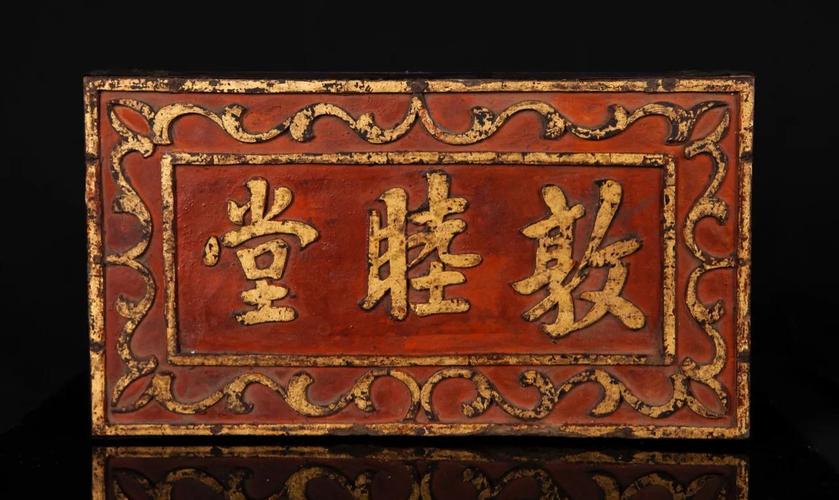 敦睦堂